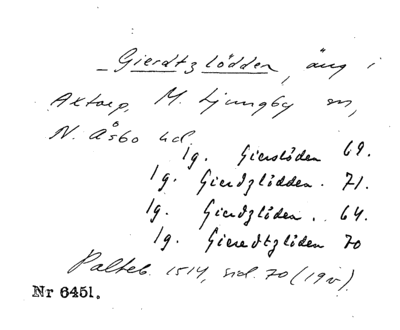 Gierdtzlödden, äng i
Axtorp, M. Ljungby sn,
N. Åsbo hd.
Ig. Gierslöden 69.
Ig. Gierdzlödden. 71.
Ig. Gierdzlödden.. 64.
Ig. Gieredtzlöden 70
Palteb. 1514, sid. 70 (19v).
Nr 6451.